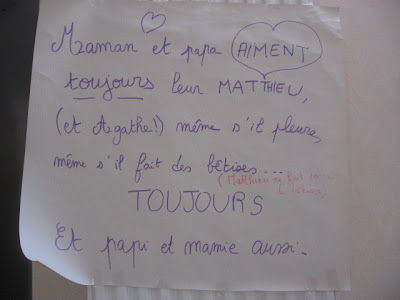 Maman et papa AIMENT
toujours leur MATTHIEU,
(et Agathe!) même s'il pleure,
même s'il fait des bêtises...
(Matthieu en fait
TOUJOURS
Et papi et mamie aussi.